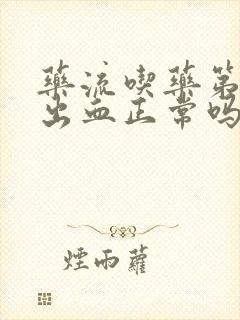 藥流喫藥第
出血正常吗
煙雨蘿